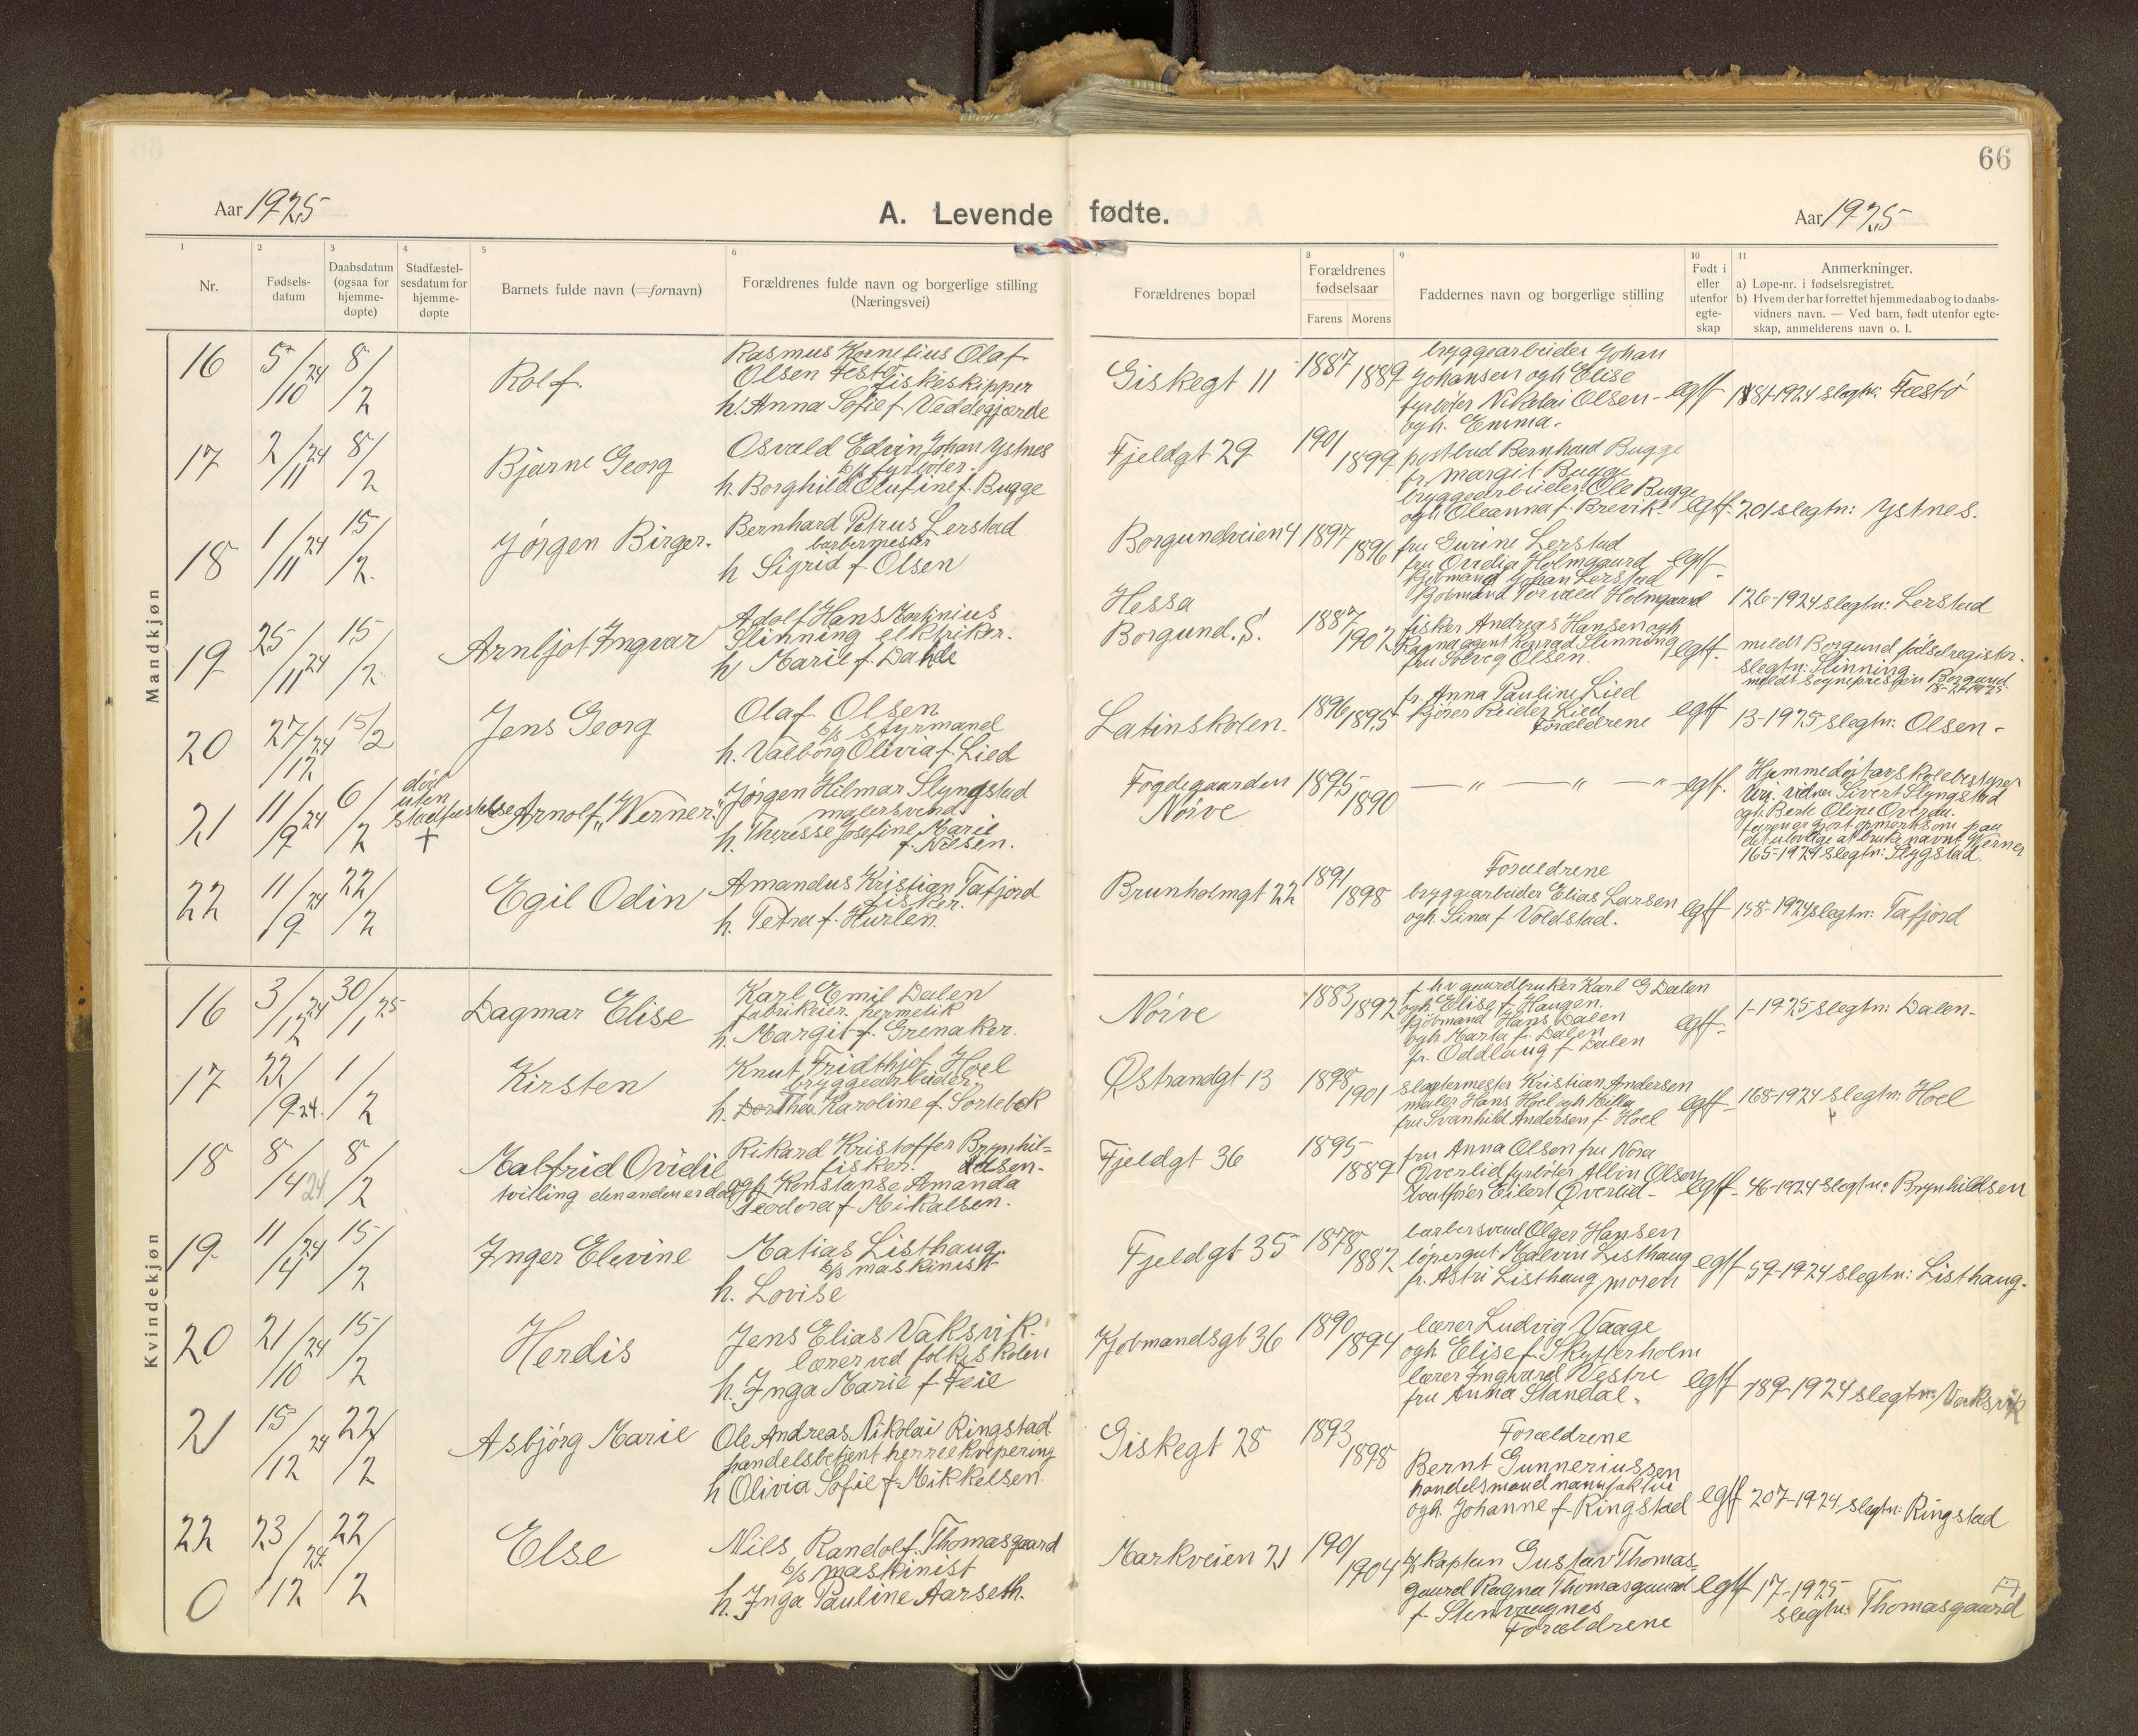 66
Aar 1925
A. Levende fødte.
Aar 1925
1 2 3 4 5 6 8 9 10 11
Nr.
Fødsels-
datum
Daabsdatum
(ogsaa for
hjemme-
døpte)
Stadfæstel-
sesdatum for
hjemme-
døpte
Barnets fulde navn (=fornavn)
Forældrenes fulde navn og borgerlige stilling
(Næringsvei)
Forældrenes bopæl
Forældrenes
fødselsaar
Farens Morens
Faddernes navn og borgerlige stilling
Født i
eller
utenfor
egte-
skap
Anmerkninger.
a) Løpe-nr. i fødselsregistret.
b) Hvem der har forrettet hjemmedaab og to daabs-
vidners navn. — Ved barn, født utenfor egte-
skap, anmelderens navn o. l.
Mandkjøn
16 5/10 24 8/2 Rolf.
Rasmus Kornelius Olaf
Olsen Festö fiskeskipper
h. Anna Sofie f. Veddegjærde
Giskegt 11 1887 1889
bryggearbeider Johan
Johansen ogh Elise
fyrböter Nikolai Olsen -
ogh. Emma.
egtf 181-1924 slegtn: Festö
17 2/11 24 8/2 Bjarne Georg
Osvald Edvin Johan Ystnes
b/s fyrböter.
h. Borghild Olufine f. Bugge
Fjeldgt 29 1901 1899
postbud Bernhard Bugge
fr. Margit Bugge
bryggearbeider Ole Bugge
ogh Oleanna f. Brevik.
egtf. 201 slegtn: Ystnes.
18 1/11 24 15/2 Jörgen Birger.
Bernhard Petrus Lerstad
barbermester
h Sigrid f Olsen
Borgundveien 4 1897 1896
fru Gurine Lerstad
fru Ovidia Holmgaard
kjöbmand Johan Lerstad
kjöbmand Torvald Holmgaard
egtf. 126-1924 slegtn: Lerstad
19 25/11 24 15/2 Arnljot Ingvar
Adolf Hans Martinius
Slinning elektriker.
h Marie f. Dahle
Hessa
Borgund. S. 1887 1902
fisker Andreas Hansen ogh
Ragna agent Konrad Slinning
fru Solveg Olsen.
egtf. meldt Borgund födselregister.
slegtn: Slinning
meldt sognepresten Borgund
18-2-1925
20 27/12 24 15/2 Jens Georg
Olaf Olsen
b/s styrmand
h. Valborg Olivia f. Lied
Latinskolen. 1896 1895
fr. Anna Pauline Lied
kjörer Reider Lied
Forældrene
egtf 13-1925 slegtn: Olsen -
21 11/9 24 6/2 död
uten
stadfæstelse
†
Arnolf "Werner"
Jörgen Hilmar Slyngstad
malersvend
h. Theresse Josefine Marie
f. Nilsen.
Fogdegaarden
Nörve 1895 1890
— " — " — " — egtf.
Hjemmedöpt av skolebestyrer
Uri. vidner Sivert Slyngstad
ogh. Berte Oline Överdu.
faren er gjort opmerksom paa
det ulovlige at bruke navnet Werner
165-1924 slegtn: Slygstad.
22 11/9 24 22/2 Egil Odin
Amandus Kristian Tafjord
fisker.
h. Petra f. Hurlen.
Brunholmgt 22 1891 1898
Forældrene
bryggearbeider Elias Larsen
ogh. Sina f Voldstad.
egtf 158-1924 slegtn: Tafjord
Kvindekjøn
16 3/12 24 30/1 25 Dagmar Elise
Karl Emil Dalen
fabrikeier hermetik
h. Margit f. Grenaker.
Nörve 1883 1892
f h v gaardbruker Karl G Dalen
ogh Elise f Haugen.
kjöbmand Hans Dalen
ogh Marta f. Dalen
fr. Oddlaug f Dalen
egtf. 1-1925 slegtn: Dalen-
17 22/9 24 1/2 Kirsten
Knut Fridthjof Hoel
bryggearbeider
h. Dorthea Karoline f Sortebek
Østrandgt 13 1898 1901
slagtermester Kristian Andersen
maler Hans Hoel ogh Hilla
fru Svanhild Andersen f. Hoel
egtf. 168-1924 slegtn: Hoel
18 8/4 24 8/2 Malfrid Ovidie
tvilling den anden er död
Rikard Kristoffer Brynhil=
fisker. dsen-
ogh Konstanse Amanda
Teodora f Mikalsen.
Fjeldgt 36 1895 1889
fru Anna Olsen fru Nora
Øverlid fyrböter Albin Olsen
baatförer Eilert Øverlid -
egtf. 46-1924 slegtn: Brynhildsen
19 11/4 24 15/2 Inger Elevine
Matias Listhaug.
b/s maskinist
h. Lovise
Fjeldgt 35 1878 1882
barbersvend Olger Hansen
löpergut Malvin Listhaug
fr. Astri Listhaug moren
egtf 59-1924 slegtn: Listhaug.
20 21/10 24 15/2 Herdis
Jens Elias Vaksvik.
lærer ved folkeskolen
h. Inga Marie f Feie
Kjöbmandsgt 36 1890 1894
lærer Ludvig Vaage
ogh Elise f. Skytterholm
lærer Ingvard Vestre
fru Anna Standal.
egtf 189-1924 slegtn: Vaksvik
21 15/12 24 22/2 Asbjörg Marie
Ole Andreas Nikolai Ringstad
handelsbetjent herreekvipering
h Olivia Sofie f. Mikkelsen.
Giskegt 28 1893 1898
Forældrene
Bernt Gunneriussen
handelsmand manufaktur
ogh. Johanne f Ringstad
egtf 207-1924 slegtn: Ringstad
22 23/12 24 22/2 Else
0
Nils Randolf Thomasgaard
b/s maskinist
h. Inga Pauline Aarseth.
Markveien 21 1901 1904
b/s kaptein Gustav Thomas=
gaard Ragna Thomasgaard
f. Stenvaagnes
Forældrene
egtf 17-1925
slegtn: Thomasgaard